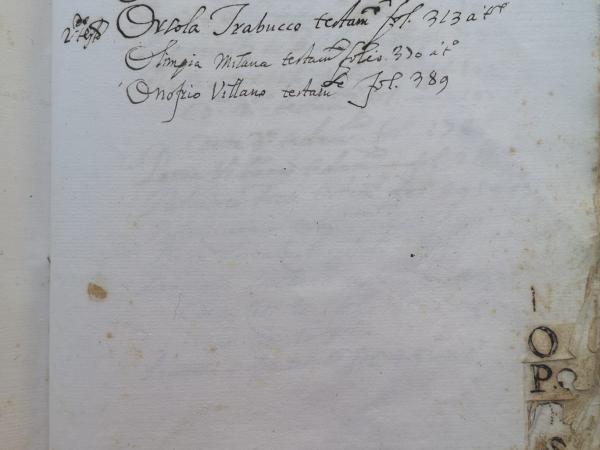 Orsola Trabucco testam.to fol. 313 a t.o
Olimpia Milana testam.to folio 370 a t.o
Onofrio Villano testam.to fol. 389
O
P.Q